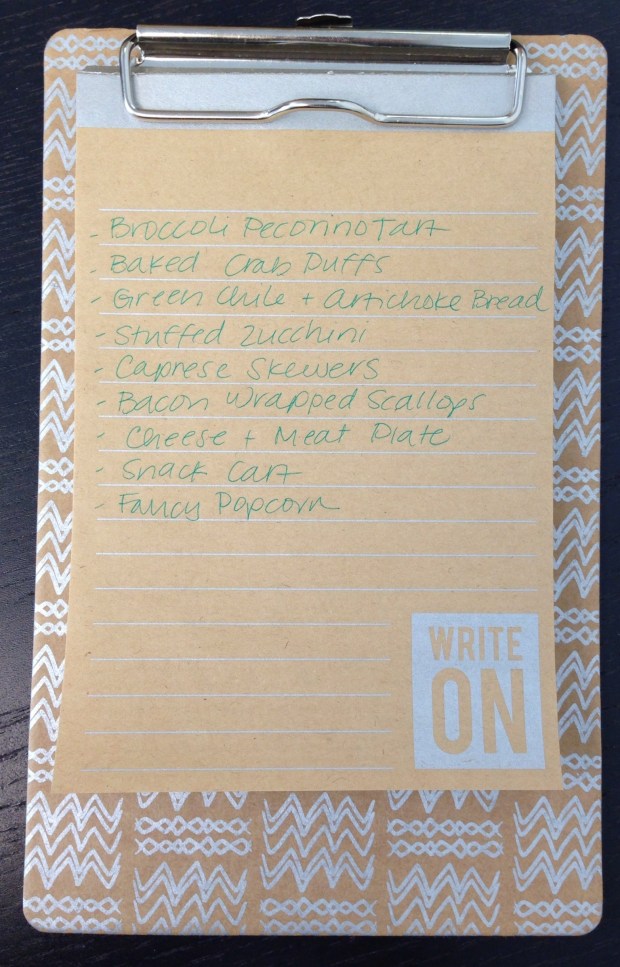 - Broccoli Pecorino Tart
- Baked Crab Puffs
- Green Chile + Artichoke Bread
- Stuffed Zucchini
- Caprese Skewers
- Bacon Wrapped Scallops
- Cheese + Meat Plate
- Snack Cart
- Fancy Popcorn
WRITE
ON